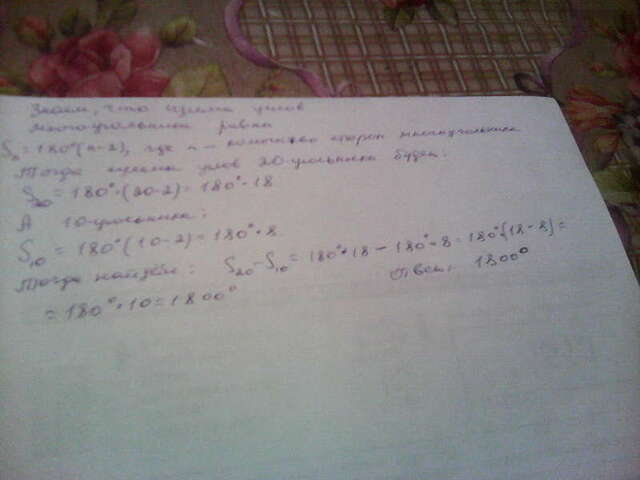 Знаем, что сумма углов
многоугольника равна
Sₙ = 180°(n-2), где n - количество сторон многоугольника
Тогда сумма углов 20-угольника будет:
S₂₀ = 180°·(20-2) = 180°·18
А 10-угольника:
S₁₀ = 180°(10-2) = 180°·8
Тогда найдём: S₂₀-S₁₀ = 180°·18 - 180°·8 = 180°(18-8) =
= 180°·10 = 1800° Ответ: 1800°